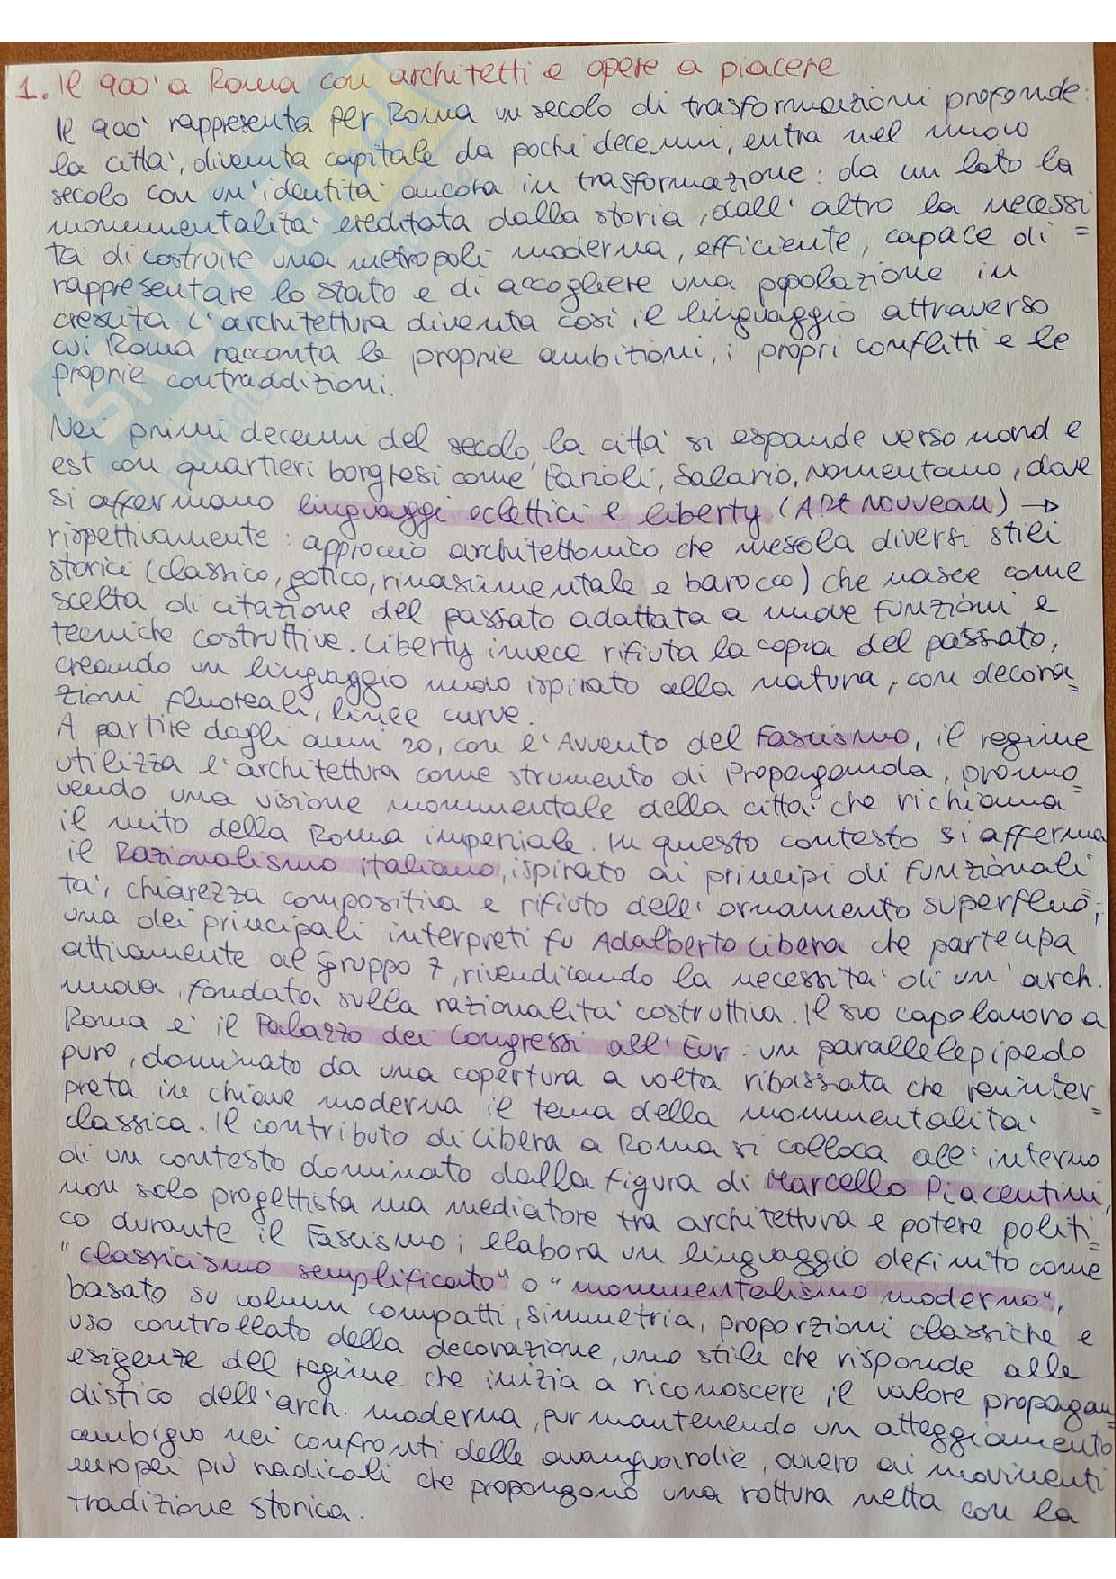 1. Il 900' a Roma con architetti e opere a piacere
Il 900' rappresenta per Roma un secolo di trasformazioni profonde:
la citta', divenuta capitale da pochi decenni, entra nel nuovo
secolo con un'identita' ancora in trasformazione: da un lato la
monumentalita' ereditata dalla storia, dall' altro la necessi
tà di costruire una metropoli moderna, efficiente, capace di =
rappresentare lo stato e di accogliere una popolazione in
crescita. L'architettura diventa così il linguaggio attraverso
cui Roma racconta le proprie ambizioni, i propri conflitti e le
proprie contraddizioni.
Nei primi decenni del secolo la citta' si espande verso nord e
est con quartieri borghesi come Parioli, Salario, Nomentano, dove
si affermano linguaggi eclettici e liberty (Art Nouveau) →
rispettivamente: approccio architettonico che mescola diversi stili
storici (classico, gotico, rinascimentale e barocco) che nasce come
scelta di citazione del passato adattata a nuove funzioni e
tecniche costruttive. Liberty invece rifiuta la copia del passato,
creando un linguaggio nuovo ispirato alla natura, con decora=
zioni fluoreali, linee curve.
A partire dagli anni 20, con l'Avvento del Fascismo, il regime
utilizza l'architettura come strumento di Propaganda, promuo=
vendo una visione monumentale della citta' che richiama
il mito della Roma imperiale. In questo contesto si afferma
il Razionalismo italiano, ispirato ai principi di funzionali
ta', chiarezza compositiva e rifiuto dell' ornamento superfluo;
uno dei principali interpreti fu Adalberto Libera che partecipa
attivamente al Gruppo 7, rivendicando la necessita' di un' arch.
nuova, fondata sulla razionalita' costruttiva. Il suo capolavoro a
Roma e' il Palazzo dei Congressi all' Eur: un parallelepipedo
puro, dominato da una copertura a volta ribassata che reinter=
preta in chiave moderna il tema della monumentalita'
classica. Il contributo di Libera a Roma si colloca all' interno
di un contesto dominato dalla figura di Marcello Piacentini,
non solo progettista ma mediatore tra architettura e potere politi=
co durante il Fascismo; elabora un linguaggio definito come
"classicismo semplificato" o "monumentalismo moderno",
basato su volumi compatti, simmetria, proporzioni classiche e
uso controllato della decorazione, uno stile che risponde alle
esigenze del regime che inizia a riconoscere il valore propagan=
distico dell'arch. moderna, pur mantenendo un atteggiamento
ambiguo nei confronti delle avanguardie, ovvero ai movimenti
europei più radicali che propongono una rottura netta con la
tradizione storica.